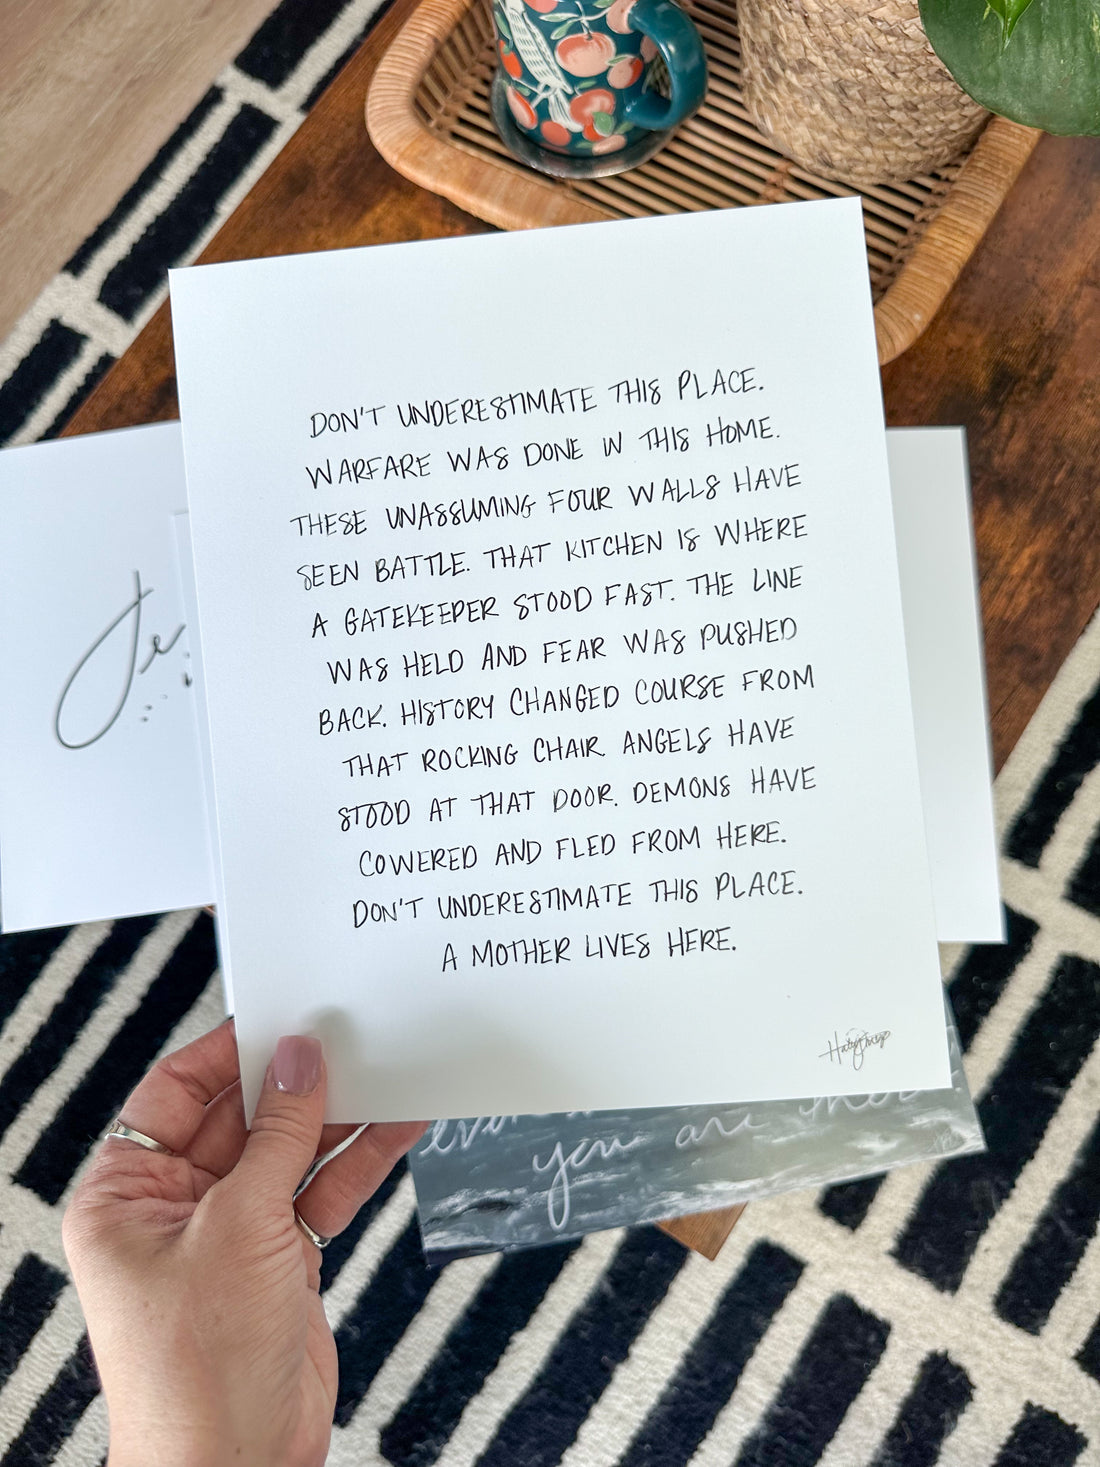 DON'T UNDERESTIMATE THIS PLACE.
WARFARE WAS DONE IN THIS HOME.
THESE UNASSUMING FOUR WALLS HAVE
SEEN BATTLE. THAT KITCHEN IS WHERE
A GATEKEEPER STOOD FAST. THE LINE
WAS HELD AND FEAR WAS PUSHED
BACK. HISTORY CHANGED COURSE FROM
THAT ROCKING CHAIR. ANGELS HAVE
STOOD AT THAT DOOR. DEMONS HAVE
COWERED AND FLED FROM HERE.
DON'T UNDERESTIMATE THIS PLACE.
A MOTHER LIVES HERE.
you are